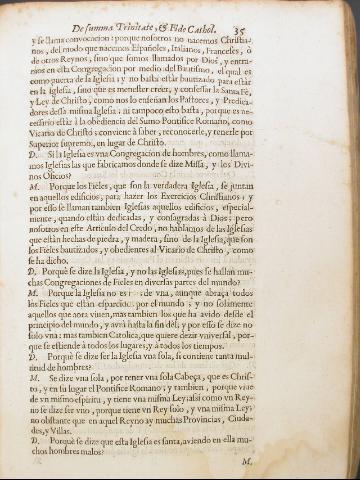 De summa Trinitate, & Fide Cathol. 35
y se llama convocacion: porque nosotros no nacemos Christia-
nos, del modo que nacemos Españoles, Italianos, Franceses, ò
de otros Reynos, sino que somos llamados por Dios, y entra-
mos en esta Congregacion por medio del Bautismo, el qual es
como puerta de la Iglesia: y no basta estàr bautizado para estàr
en la Iglesia, sino que es menester creer, y confessar la Santa Fè,
y Ley de Christo, como nos lo enseñan los Pastores, y Predica-
dores dessa misma Iglesia: ni tampoco esto basta, porque es ne-
cessario estàr à la obediencia del Sumo Pontifice Romano, como
Vicario de Christo; conviene à saber, reconocerle, y tenerle por
Superior supremo, en lugar de Christo.
D. Si la Iglesia es vna Congregacion de hombres, como llama-
mos Iglesias las que fabricamos donde se dize Missa, y los Divi-
nos Oficios?
M. Porque los Fieles, que son la verdadera Iglesia, se juntan
en aquellos edificios, para hazer los Exercicios Christianos: y
por esso se llaman tambien Iglesias aquellos edificios, especial-
mente, quando estàn dedicadas, y consagradas à Dios; pero
nosotros en este Articulo del Credo, no hablamos de las Iglesias
que estàn hechas de piedra, y madera, sino de la Iglesia, que son
los Fieles bautizados, y obedientes al Vicario de Christo, como
se ha dicho.
D. Porquè se dize la Iglesia, y no las Iglesias, pues se hallan mu-
chas Congregaciones de Fieles en diversas partes del mundo?
M. Porque la Iglesia no es de vna, aunque abraça todos
los Fieles que estàn esparcidos por el mundo; y no solamente
aquellos que aora viven, mas tambien los que ha avido desde el
principio del mundo, y avrà hasta la fin dèl; y por esso se dize no
solo vna: mas tambien Catolica, que quiere dezir vniversal, por-
que se estiende à todos los lugares, y à todos los tiempos.
D. Porquè se dize ser la Iglesia vna sola, si contiene tanta mul-
titud de hombres?
M. Se dize vna sola, por tener vna sola Cabeça, que es Chris-
to, y en su lugar el Pontifice Romano; y tambien, porque vive
de vn mismo espiritu, y tiene vna misma Ley: assi como vn Rey-
no se dize ser vno, porque tiene vn Rey solo, y vna misma Ley:
no obstante que en aquel Reyno ay muchas Provincias, Ciuda-
des, y Villas.
D. Porquè se dize que esta Iglesia es santa, aviendo en ella mu-
chos hombres malos?
M.